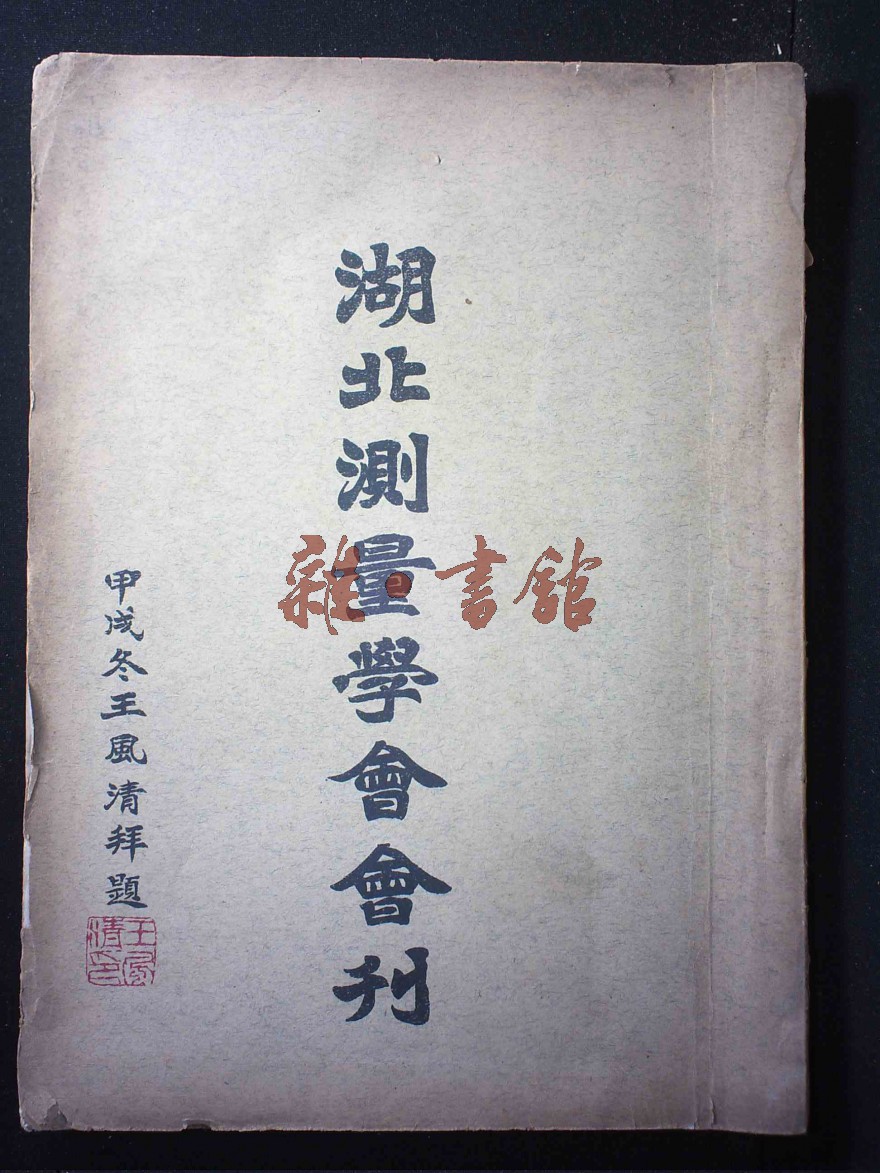 湖北測量學會會刊
甲戌冬王風清拜題
王風清印
雜·書館